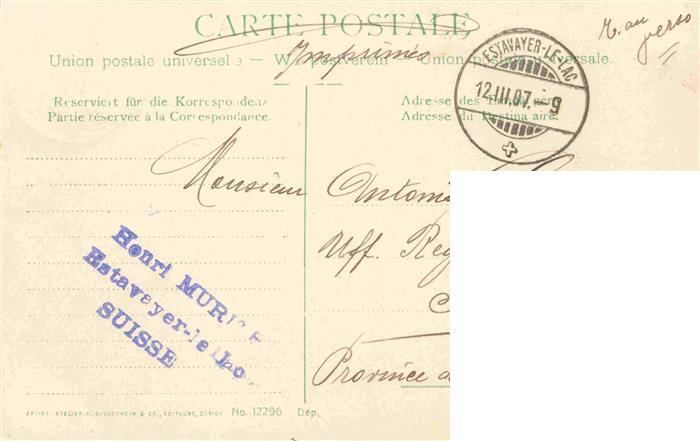 CARTE POSTALE
Imprimés
T. au
verso
Union postale universelle – W postverein – Union postale universale.
ESTAVAYER-LE-LAC
12.III.07. 9
Reserviert für die Korrespondenz
Partie réservée à la Correspondance.
Adresse des
Adresse du Destinataire.
Monsieur Antoni
Uff. Reg
Province
Henri
Estavayer-le-Lac
SUISSE
ARTIST. ATELIER H. GUGGENHEIM & CO., EDITEURS, ZÜRICH No. 12296 Dép.